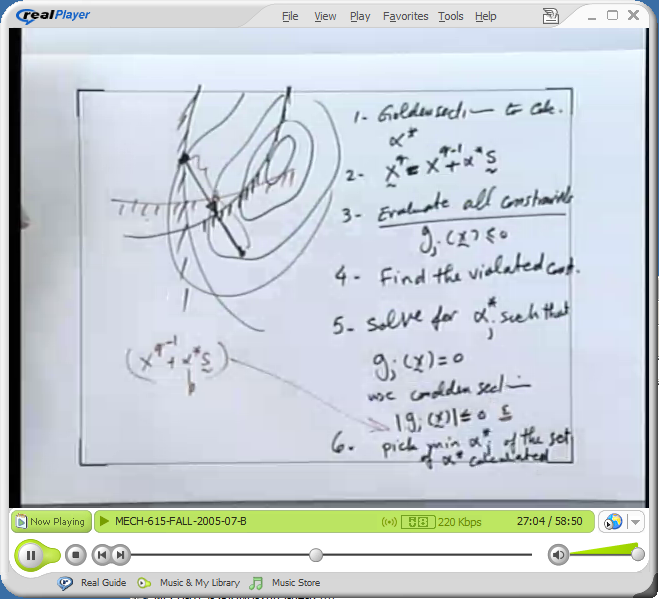 realPlayer
File View Play Favorites Tools Help
1- Golden section to calc.
α*
2- x^q = x^q-1 + α* s
3- Evaluate all constraints
g_j (x) ≤ 0
4- Find the violated const.
5- solve for α*_j such that
g_j (x) = 0
use Golden section
|g_j (x)| ≤ 0 ε
6. pick min α*_j of the set
of α* calculated
(x^q-1 + α* s)
Now Playing
MECH-615-FALL-2005-07-B
220 Kbps
27:04 / 58:50
Real Guide
Music & My Library
Music Store